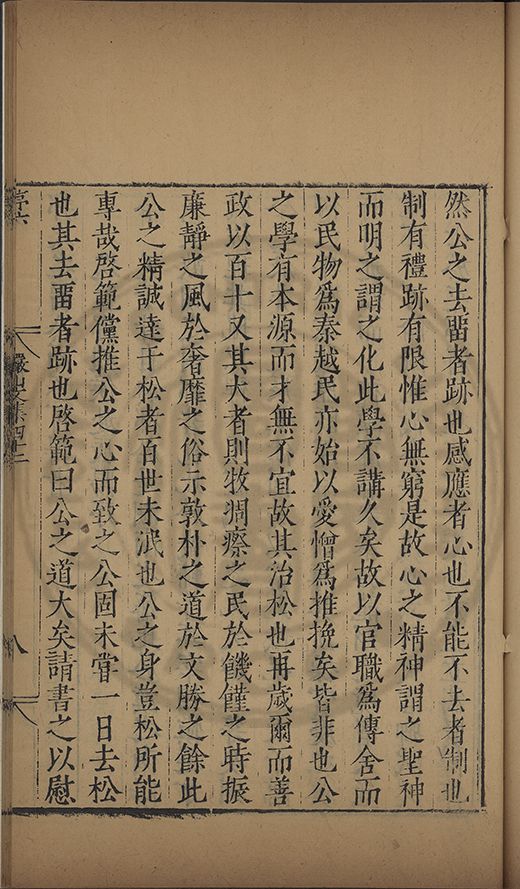 然公之去畱者跡也感應者心也不能不去者制也
制有禮跡有限惟心無窮是故心之精神謂之聖神
而明之謂之化此學不講久矣故以官職爲傳舍而
以民物爲秦越民亦始以愛憎爲推挽矣皆非也公
之學有本源而才無不宜故其治松也再歲爾而善
政以百十又其大者則牧凋瘵之民於饑饉之時振
廉靜之風於奢靡之俗示敦朴之道於文勝之餘此
公之精誠達于松者百世未泯也公之身豈松所能
專哉啓範儻推公之心而致之公固未嘗一日去松
也其去畱者跡也啓範曰公之道大矣請書之以慰
序六
儼山文集四十二
八